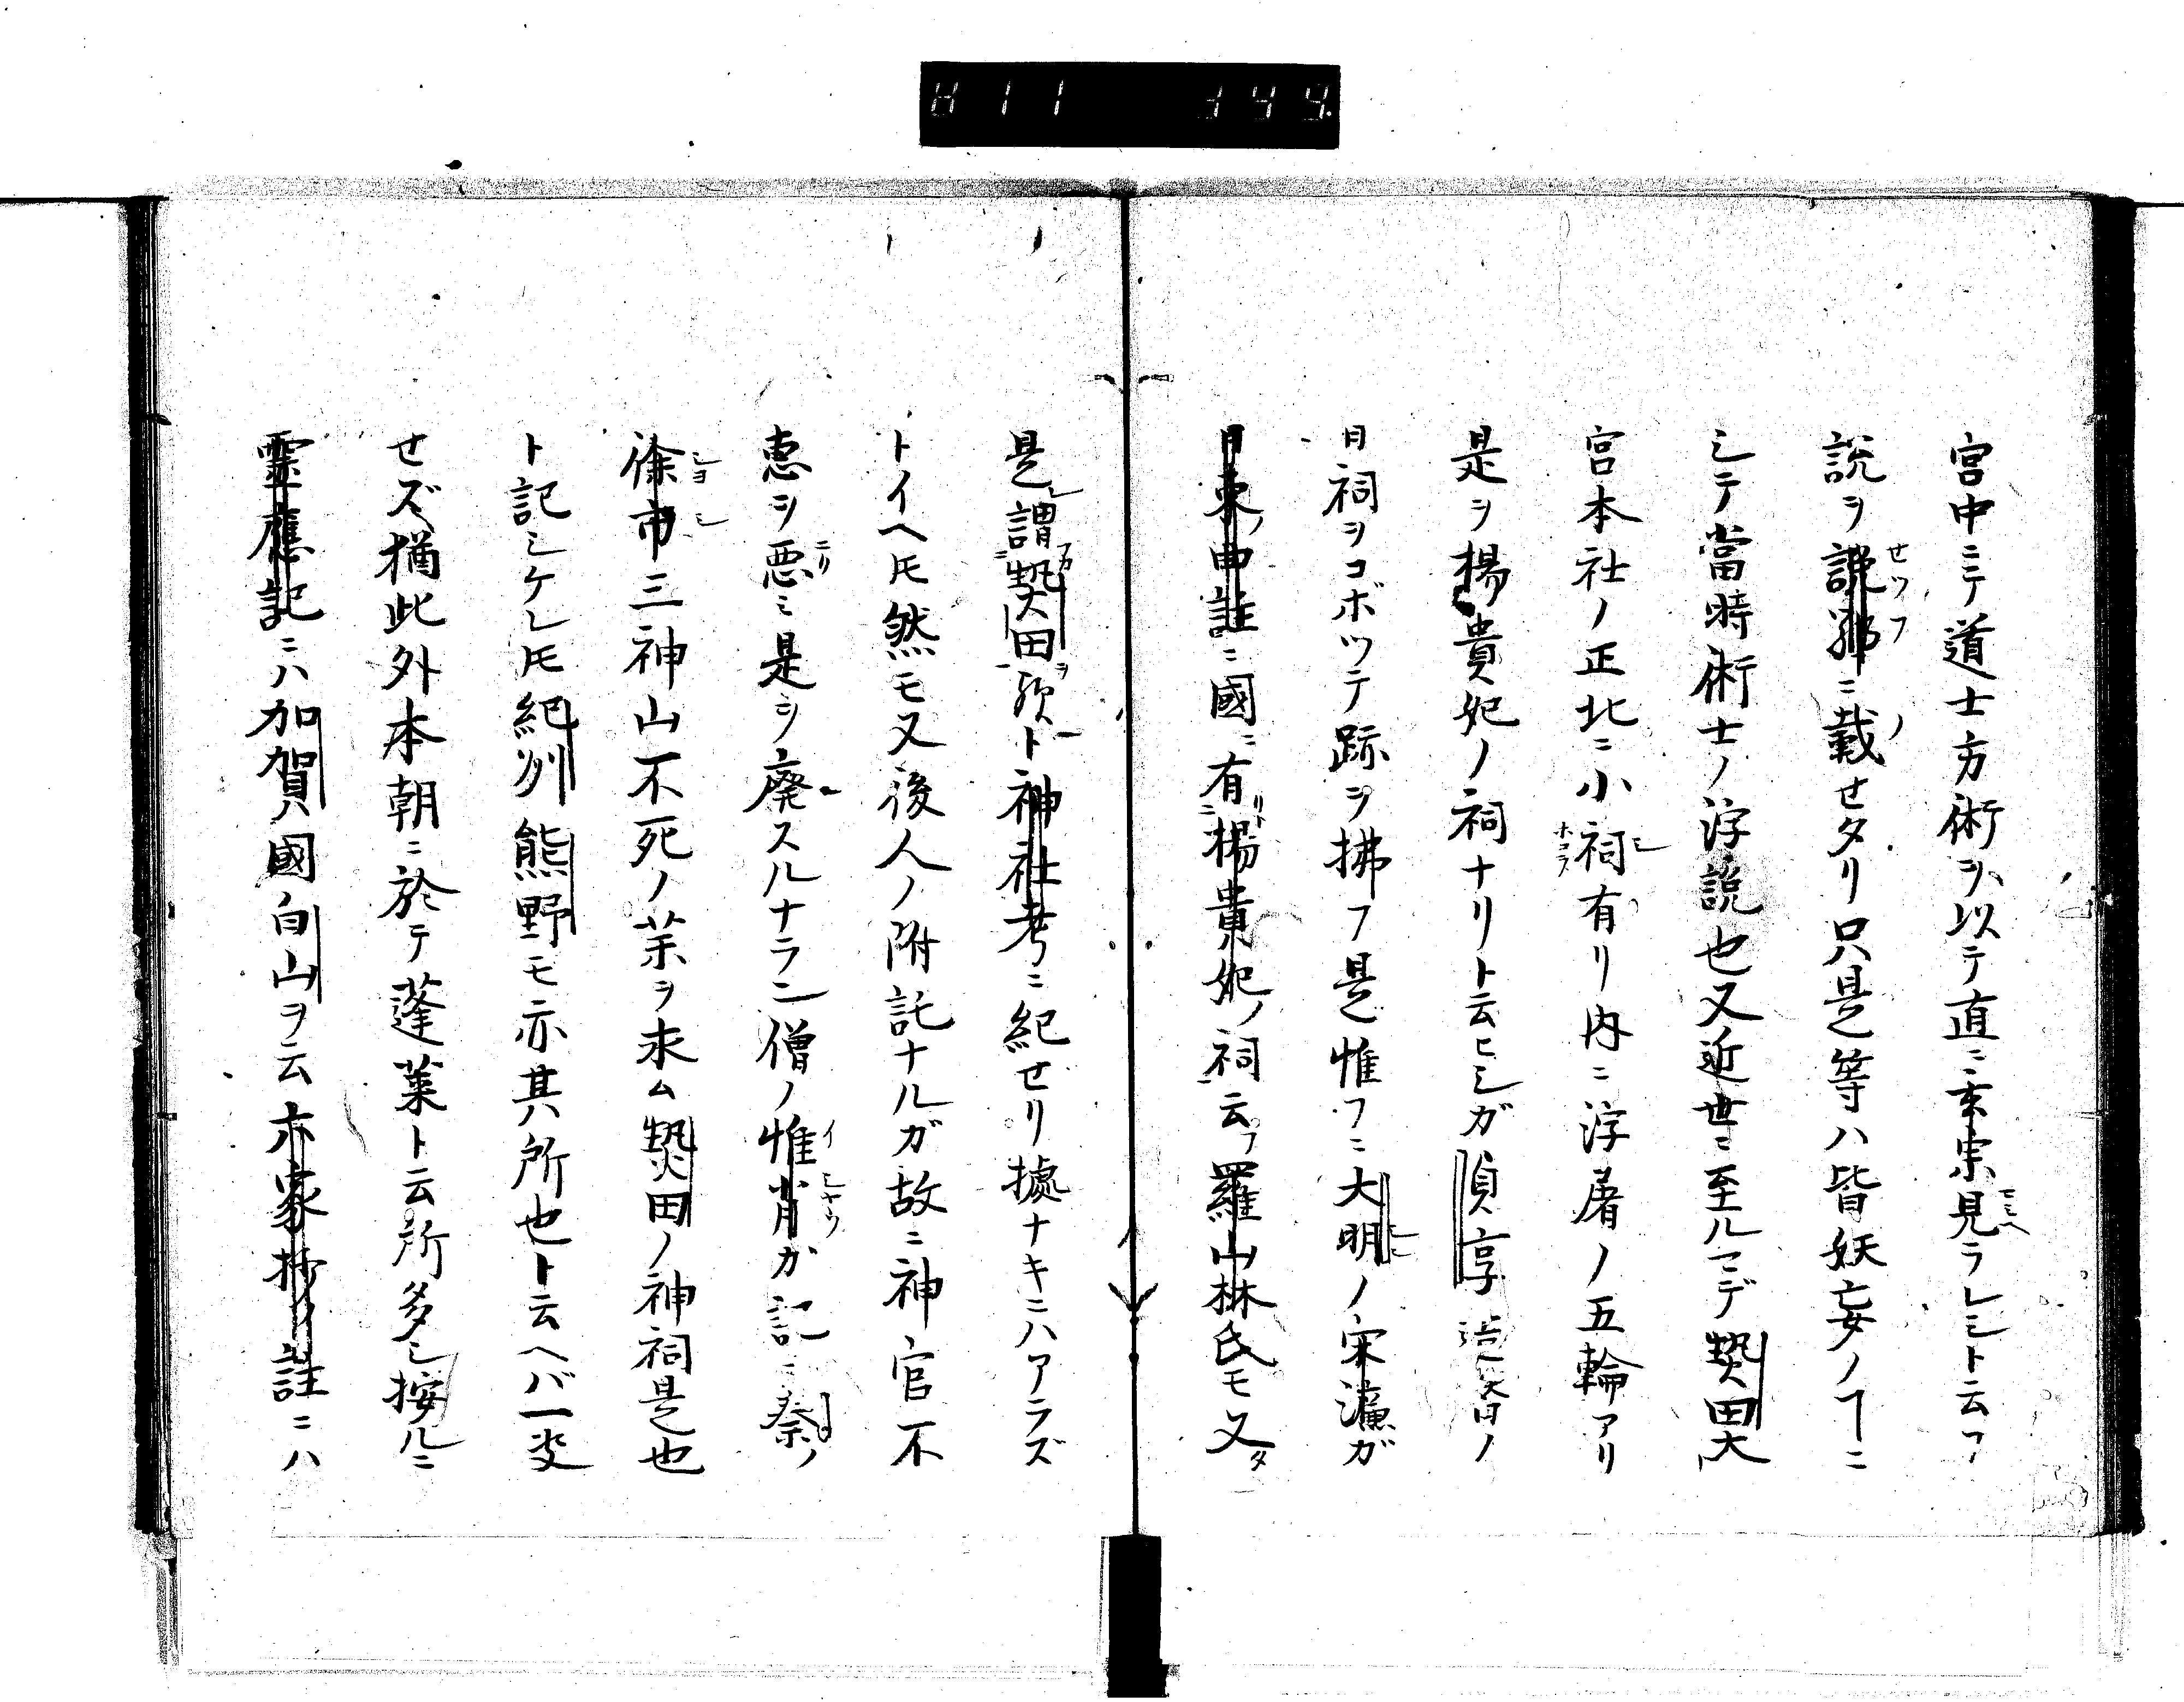 宮中ニテ道士方術ヲ以テ直ニ玄宗見ラレシト云フ
説ヲ説郛ニ載セタリ只是等ハ皆妖妄ノヿニ
シテ當時術士ノ浮説也又近世ニ至ルマデ熱田大
宮本社ノ正北ニ小祠有リ内ニ浮屠ノ五輪アリ
是ヲ楊貴妃ノ祠ナリト云ヒシガ貞享造営ノ
日祠ヲコボツテ跡ヲ拂フ是惟フニ大明ノ宋濂ガ
日東ノ曲註ニ國ニ有楊貴妃ノ祠云フ羅山林氏モ又
是謂熱田ヲ歟ト神社考ニ紀セリ據ナキニハアラズ
トイヘ𪜈然モ又後人ノ附託ナルガ故ニ神官不
恵ヲ悪ミ是ヲ廃スルナラン僧ノ惟肖カ記ニ秦ノ
徐市三神山不死ノ藥ヲ求ム熱田ノ神祠是也
ト記シケレ𪜈紀州熊野モ亦其所也ト云ヘバ一定
セズ猶此外本朝ニ於テ蓬莱ト云所多シ按ルニ
霊應記ニハ加賀國白山ヲ云朩家抄ノ註ニハ